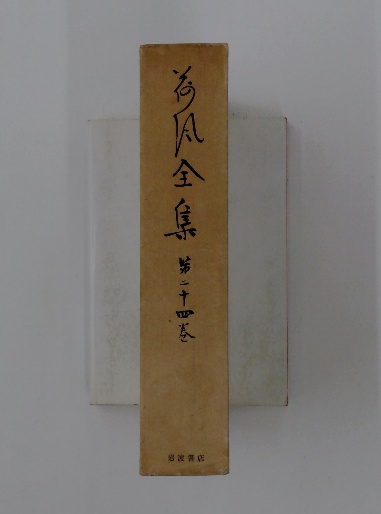 荷風全集 第二十四巻
岩波書店